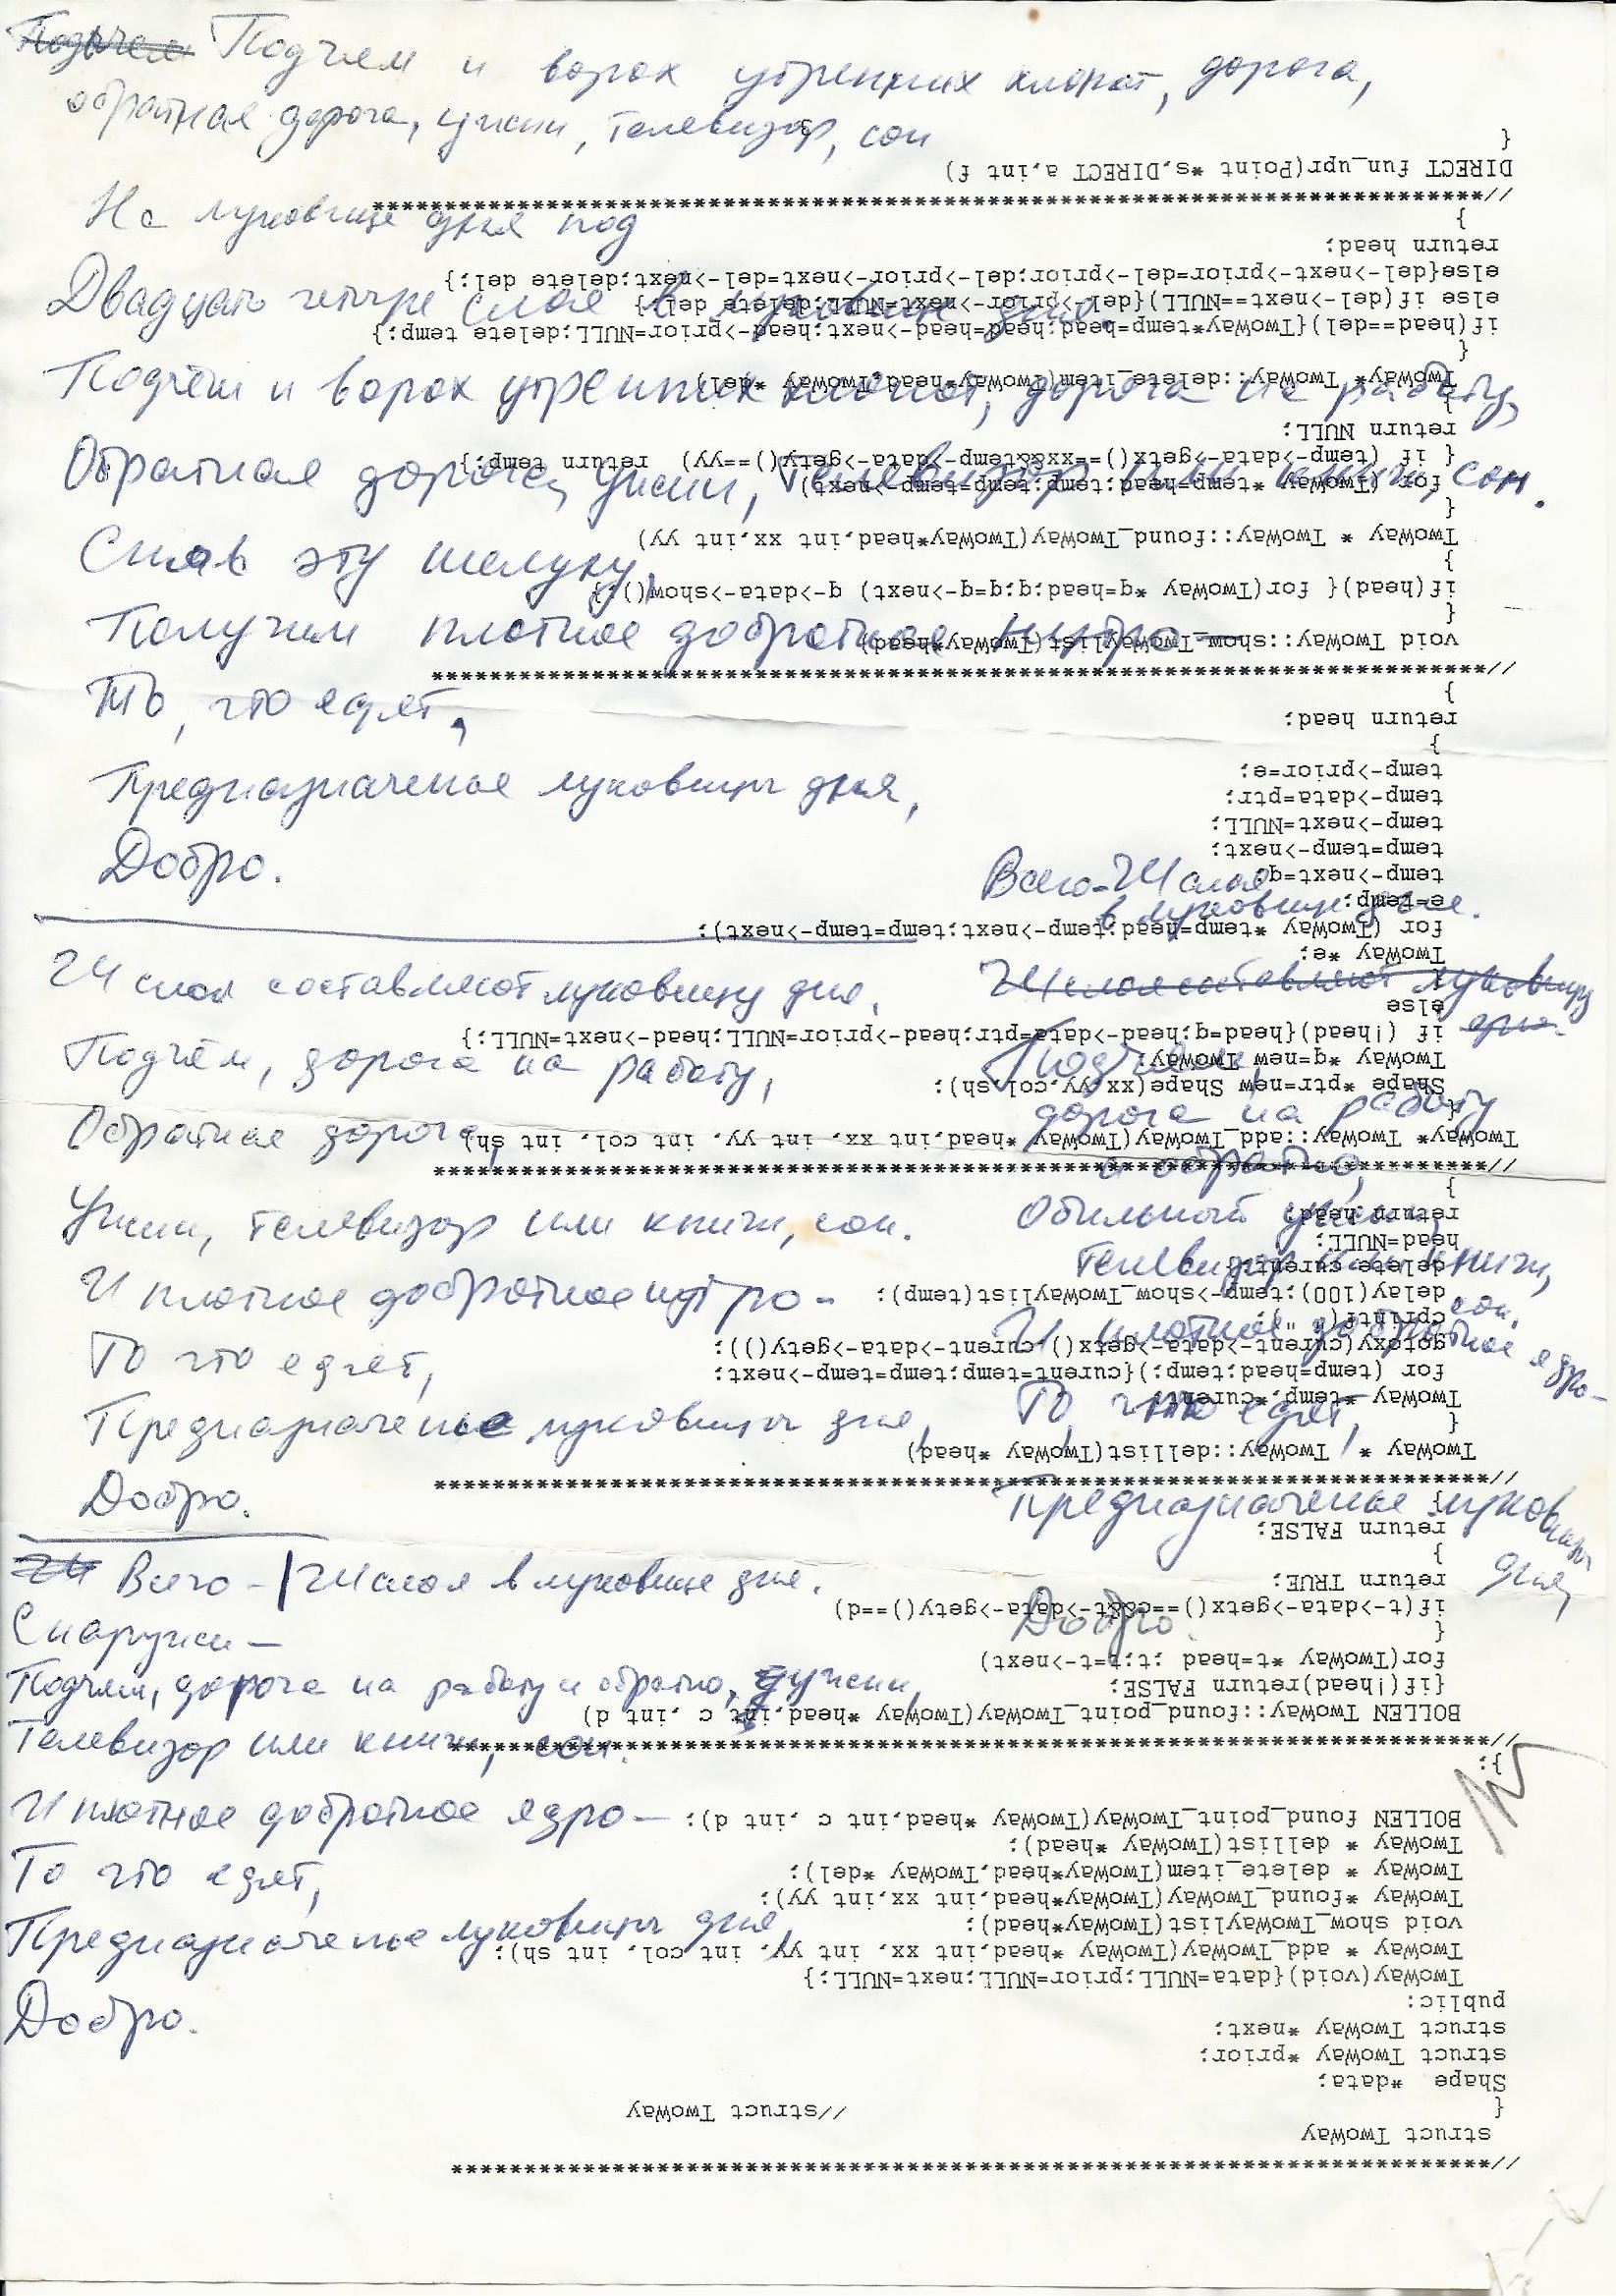 Подъем Подъем и ворох утренних хлопот, дорога,
обратная дорога, ужин, телевизор, сон
На луковице дня под
Двадцать четыре слоя в луковице дня.
Подъём и ворох утренних хлопот, дорога на работу,
Обратная дорога, ужин, телевизор или книги, сон.
Сняв эту шелуху,
Получим плотное добротное нутро —
То, что едят,
Предназначенье луковицы дня,
Добро.
24 слоя составляют луковицу дня.
Подъём, дорога на работу,
Обратная дорога,
Ужин, телевизор или книги, сон.
И плотное добротное нутро -
То что едят,
Предназначенье луковицы дня,
Добро.
Всего - 24 слоя
в луковице дня.
24 слоя составляют луковицу
дня.
Подъем,
дорога на работу
и обратно,
Обильный ужин,
телевизор или книги,
сон.
И плотное добротное ядро -
То, что едят,
Предназначенье луковицы
дня,
Добро.
24 Всего - | 24 слоя в луковице дня.
Снаружи —
Подъем, дорога на работу и обратно, ужин,
Телевизор или книги, сон.
И плотное добротное ядро —
То что едят,
Предназначенье луковицы дня,
Добро.
//*************************************************************************
struct TwoWay
{ //struct TwoWay
Shape *data;
struct TwoWay *prior;
struct TwoWay *next;
public:
TwoWay(void){data=NULL;prior=NULL;next=NULL;}
TwoWay * add_TwoWay(TwoWay *head,int xx, int yy, int col, int sh);
void show_TwoWaylist(TwoWay*head);
TwoWay *found_TwoWay(TwoWay*head,int xx,int yy);
TwoWay * delete_item(TwoWay*head,TwoWay *del);
TwoWay * dellist(TwoWay *head);
BOLLEN found_point_TwoWay(TwoWay *head,int c ,int d);
};
//*************************************************************************
BOLLEN TwoWay::found_point_TwoWay(TwoWay *head,int c ,int d)
{if(!head)return FALSE;
for(TwoWay *t=head ;t;t=t->next)
{
if(t->data->getx()==c&&t->data->gety()==d)
return TRUE;
}
return FALSE;
}
//*************************************************************************
TwoWay * TwoWay::dellist(TwoWay *head)
{
TwoWay *temp,*curent;
for (temp=head;temp;){curent=temp;temp=temp->next;
gotoxy(curent->data->getx(),curent->data->gety());
cprintf(" ");
delay(100);temp->show_TwoWaylist(temp);
delete curent;}
head=NULL;
return head;
}
//*************************************************************************
TwoWay* TwoWay::add_TwoWay(TwoWay *head,int xx, int yy, int col, int sh)
{
Shape *ptr=new Shape(xx,yy,col,sh);
TwoWay *q=new TwoWay;
if (!head){head=q;head->data=ptr;head->prior=NULL;head->next=NULL;}
else
{
TwoWay *e;
for (TwoWay *temp=head;temp->next;temp=temp->next);
e=temp;
temp->next=q;
temp=temp->next;
temp->next=NULL;
temp->data=ptr;
temp->prior=e;
}
return head;
}
//*************************************************************************
void TwoWay::show_TwoWaylist(TwoWay*head)
{
if(head){ for(TwoWay *q=head;q;q=q->next) q->data->show();}
}
TwoWay * TwoWay::found_TwoWay(TwoWay*head,int xx,int yy)
{
for (TwoWay *temp=head;temp;temp=temp->next)
{ if (temp->data->getx()==xx&&temp->data->gety()==yy) return temp;}
return NULL;
}
TwoWay* TwoWay::delete_item(TwoWay*head,TwoWay *del)
{
if(head==del){TwoWay*temp=head;head=head->next;head->prior=NULL;delete temp;}
else if(del->next==NULL){del->prior->next=NULL;delete del;}
else{del->next->prior=del->prior;del->prior->next=del->next;delete del;}
return head;
}
//*************************************************************************
DIRECT fun_upr(Point *s,DIRECT a,int f)
{